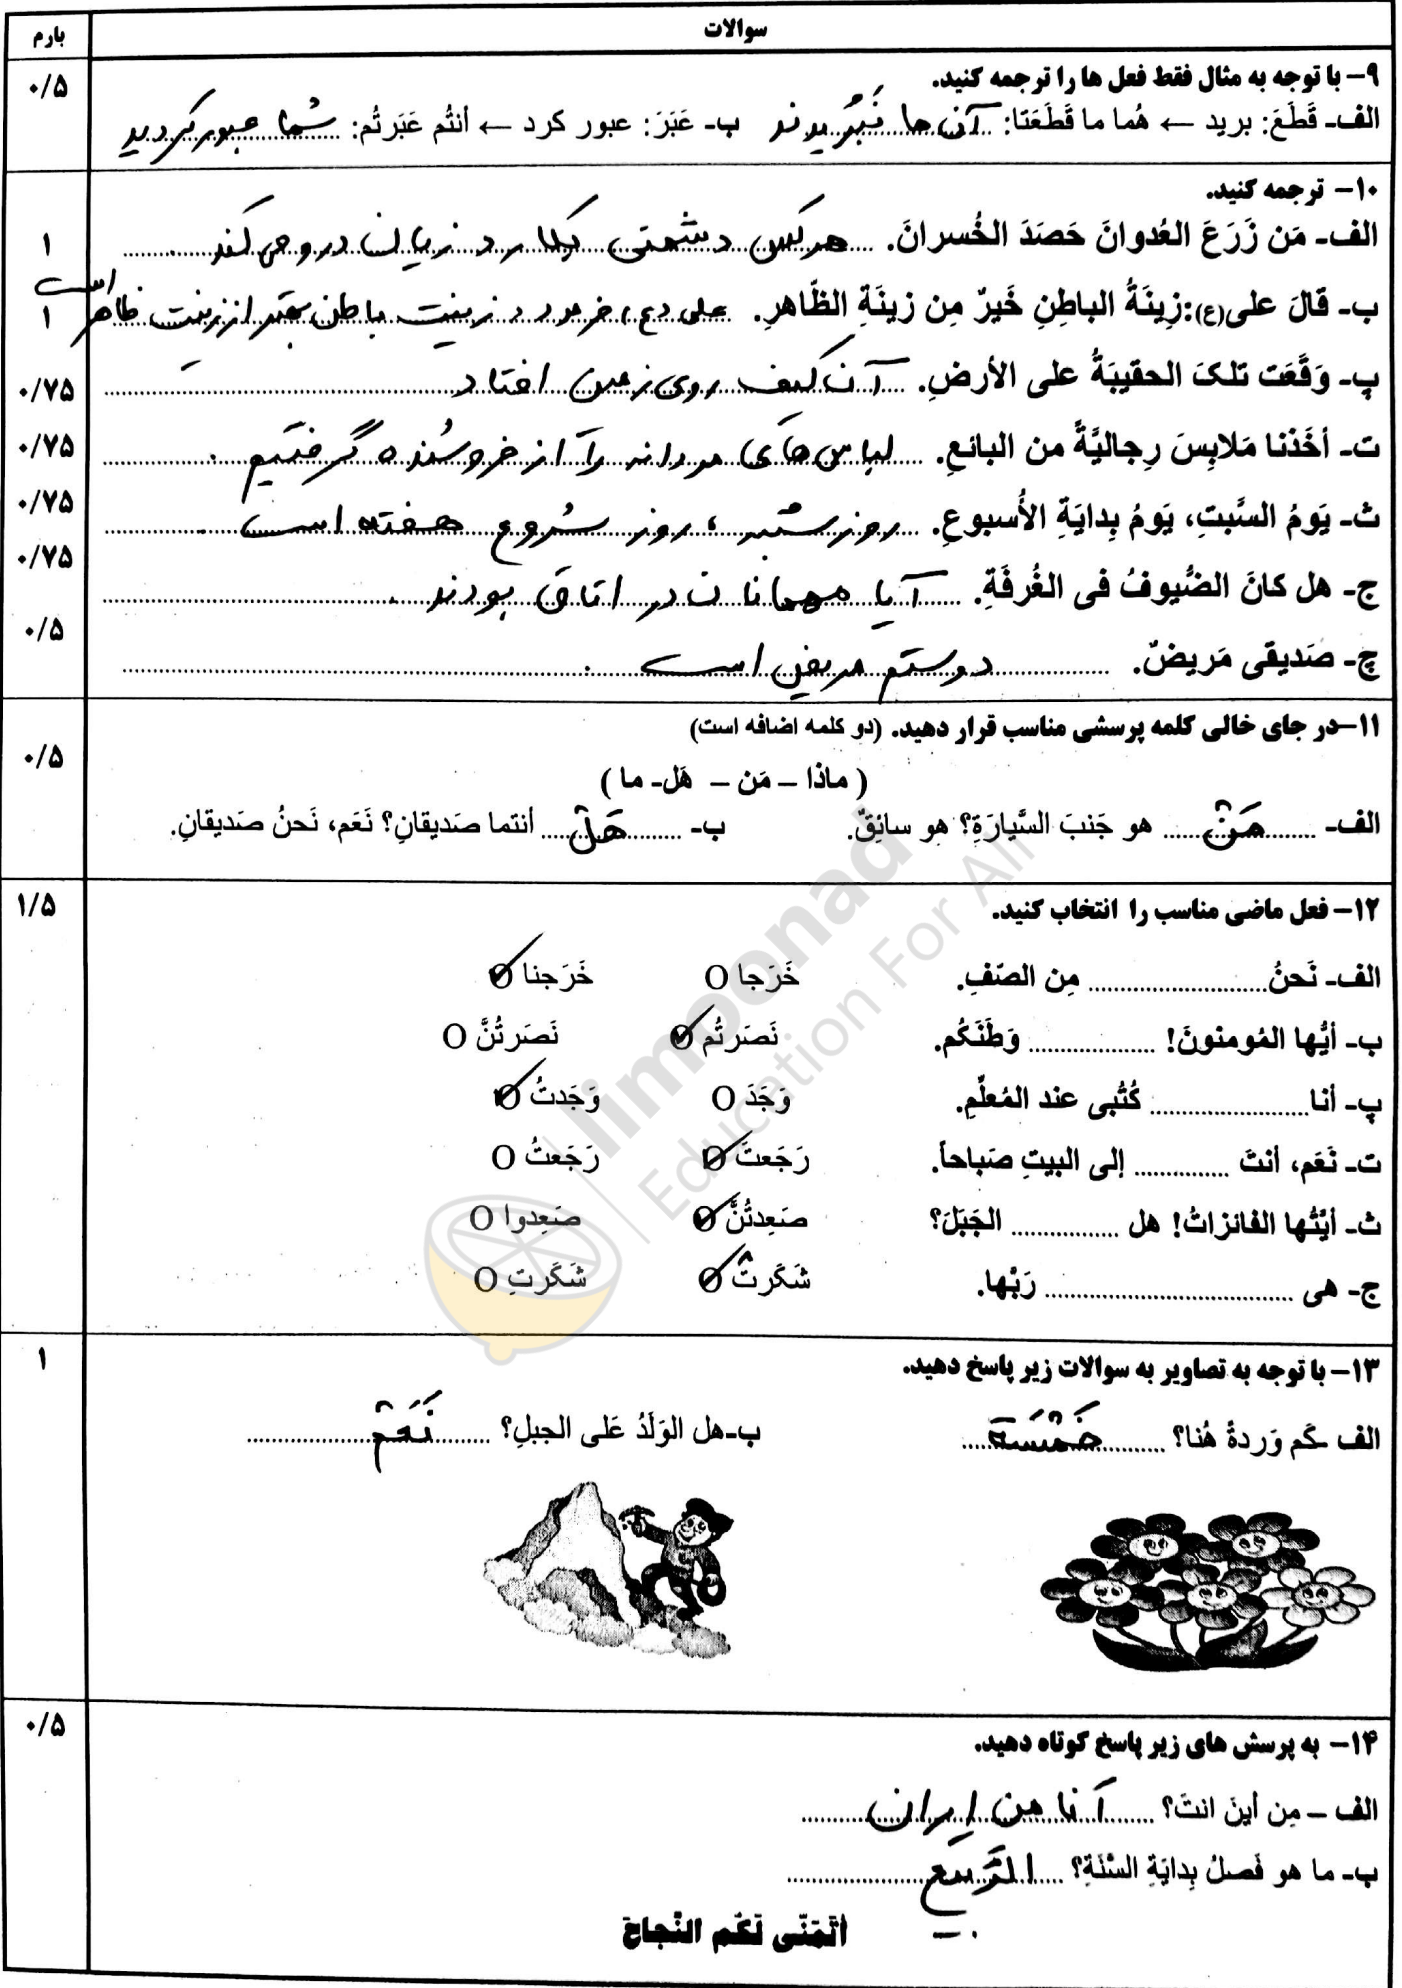 سوالات
بارم
۹- با توجه به مثال فقط فعل ها را ترجمه کنید.
۰/۵
الف- قَطَعَ: برید ← هُما ما قَطَعَتا: آن ها نَبُریدند ب- عَبَرَ: عبور کرد ← أنتُم عَبَرتُم: شما عبور کردید
۱۰- ترجمه کنید.
الف- مَن زَرَعَ العُدوانَ حَصَدَ الخُسرانَ. هر کس دشمنی بکارد زیان درو می کند.
۱
ب- قالَ علی(ع):زِینَةُ الباطِنِ خَیرٌ مِن زینَةِ الظّاهرِ. علی (ع) فرمود: زینت باطن بهتر از زینت ظاهر است
۱
پ- وَقَعَت تلکَ الحقیبَةُ علی الأرضِ. آن کیف روی زمین افتاد
۰/۷۵
ت- أخَذْنا مَلابِسَ رِجالیَّةً من البائعِ. لباس های مردانه را از فروشنده گرفتیم.
۰/۷۵
ث- یَومُ السَّبتِ، یَومُ بِدایَةِ الأُسبوعِ. روز شنبه، روز شروع هفته است.
۰/۷۵
ج- هل کانَ الضُّیوفُ فی الغُرفَةِ. آیا مهمانان در اتاق بودند.
۰/۷۵
چ- صَدیقی مَریضٌ. دوستم مریض است.
۰/۵
۱۱-در جای خالی کلمه پرسشی مناسب قرار دهید. (دو کلمه اضافه است)
۰/۵
( ماذا – مَن – هَل- ما )
الف- مَنْ هو جَنبَ السَّیارَةِ؟ هو سائِقٌ. ب- هَلْ أنتما صَدیقانِ؟ نَعَم، نَحنُ صَدیقانِ.
۱۲- فعل ماضی مناسب را انتخاب کنید.
۱/۵
الف- نَحنُ .......... مِن الصّفِ. خَرَجا O خَرَجنا O
ب- أیُّها المُومنونَ! .......... وَطَنَکُم. نَصَرتُم O نَصَرتُنَّ O
پ- أنا .......... کُتُبی عند المُعلّمِ. وَجَدَ O وَجَدتُ O
ت- نَعَم، أنتَ .......... إلی البیتِ صَباحاً. رَجَعتَ O رَجَعتُ O
ث- أیَّتُها الفائزاتُ! هل .......... الجَبَلَ؟ صَعِدتُنَّ O صَعِدوا O
ج- هی .......... رَبَّها. شَکَرتْ O شَکَرتِ O
limoonad
Education For All
۱۳- با توجه به تصاویر به سوالات زیر پاسخ دهید.
۱
الف -کَم وَردةً هُنا؟ خَمْسَة ب-هل الوَلَدُ عَلی الجبلِ؟ نَعَمْ
۱۴- به پرسش های زیر پاسخ کوتاه دهید.
۰/۵
الف – مِن أینَ انتَ؟ أنا من إیران
ب- ما هو فَصلُ بِدایَةِ السَّنَةِ؟ الرَّبیع
أتَمَنّی لَکُم النَّجاحَ